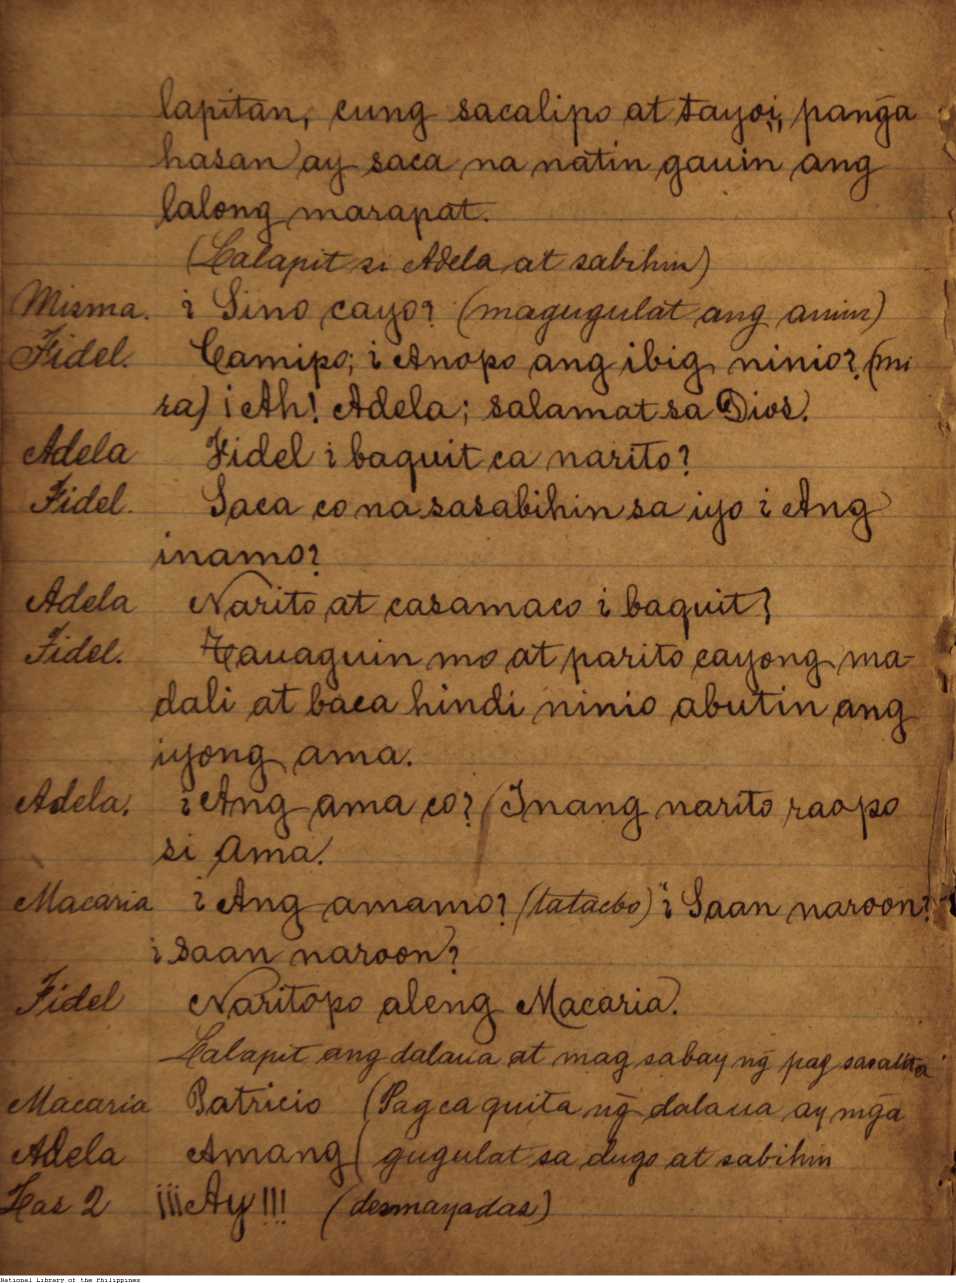 lapitan, cung sacalipo at tayoi, pang̃a
hasan ay saca na natin gauin ang
lalong marapat.
(Lalapit si Adela at sabihin)
Misma. ¿ Sino cayo? (magugulat ang anim)
Fidel. Camipo; ¿ Anopo ang ibig ninio? (mi
ra) ¡ Ah! Adela; salamat sa Dios.
Adela Fidel ¿ baquit ca narito?
Fidel. Saca co na sasabihin sa iyo ¿ Ang
inamo?
Adela Narito at casamaco ¿ baquit?
Fidel. Tauaguin mo at parito cayong ma-
dali at baca hindi ninio abutin ang
iyong ama.
Adela. ¿ Ang ama co? Inang narito raopo
si Ama.
Macaria ¿ Ang amamo? (tatacbo) ¿ Saan naroon?
¿ saan naroon?
Fidel Naritopo aleng Macaria.
Lalapit ang dalaua at mag sabay ng̃ pag sasalita
Macaria Patricio (Pagca quita ng̃ dalaua ay mg̃a
Adela Amang ( gugulat sa dugo at sabihin
Las 2 ¡¡¡Ay!!! (desmayadas)
National Library of the Philippines